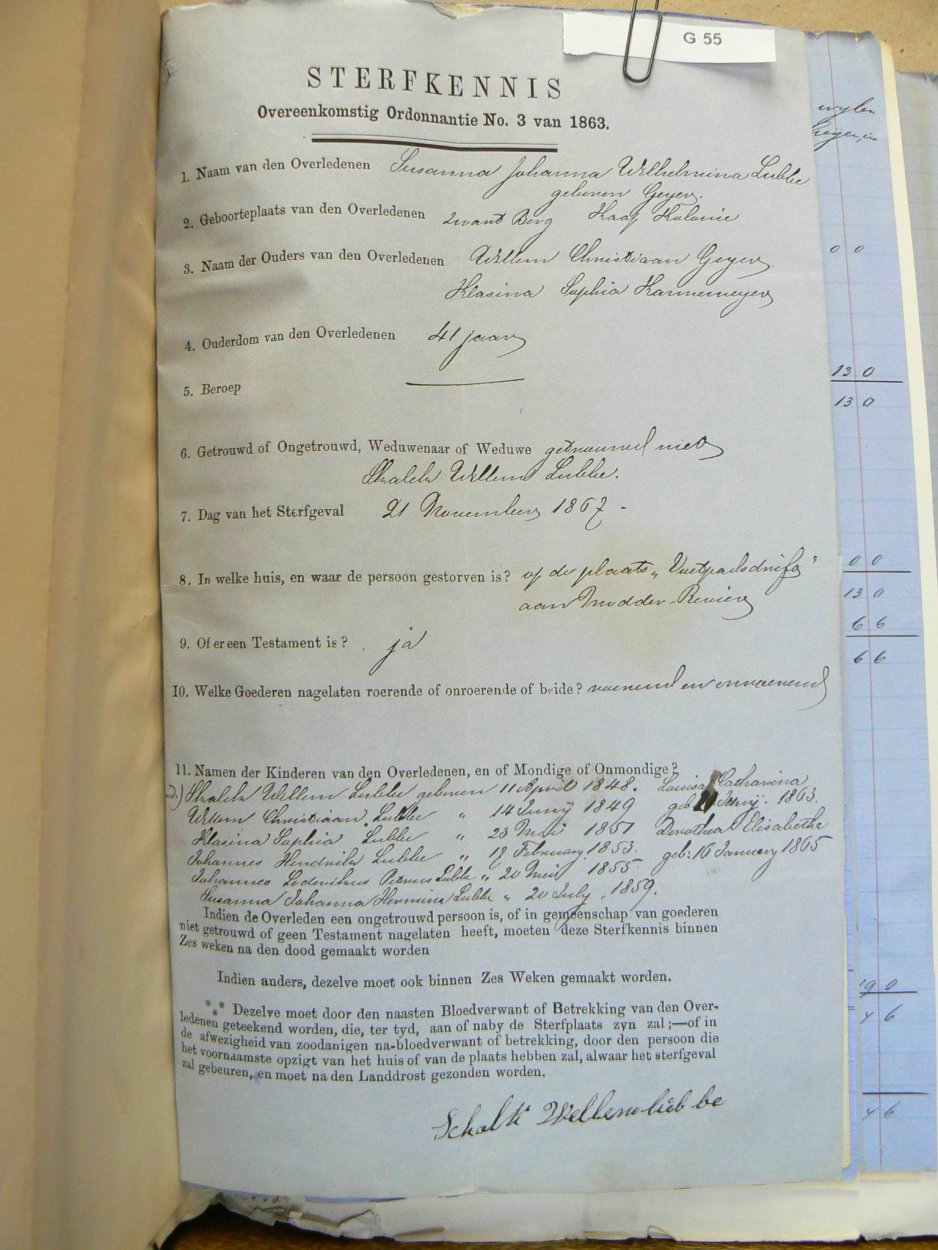 G 55
STERFKENNIS
Overeenkomstig Ordonnantie No. 3 van 1863.
1. Naam van den Overledenen Susanna Johanna Wilhelmina Lubbe
geboren Geyer.
2. Geboorteplaats van den Overledenen Zwart Berg Kaap Kolonie
3. Naam der Ouders van den Overledenen Willem Christiaan Geyer
Klasina Sophia Hannemeyer
4. Ouderdom van den Overledenen 41 jaar
5. Beroep
6. Getrouwd of Ongetrouwd, Weduwenaar of Weduwe getrouwd met
Schalck Willem Lubbe.
7. Dag van het Sterfgeval 21 November 1867 -
8. In welke huis, en waar de persoon gestorven is? op de plaats „Voetpadsdrift"
aan Modder-Revier
9. Of er een Testament is? ja
10. Welke Goederen nagelaten roerende of onroerende of beide? roerend en onroerend
11. Namen der Kinderen van den Overledenen, en of Mondige of Onmondige?
Schalck Willem Lubbe geboren 11 April 1848. Louisa Catharina
Willem Christiaan Lubbe „ 14 Junij 1849 geb 1863.
Klasina Sophia Lubbe „ 23 Mei 1851 Dorothea Elisabetha
Johannes Hendrik Lubbe „ February 1853. geb: 16 January 1865
Johannes Lodewikus Petrus Lubbe „ 20 Mei 1855
Susanna Johanna Hermina Lubbe „ 20 July . 1859.
Indien de Overleden een ongetrouwd persoon is, of in gemeenschap van goederen
niet getrouwd of geen Testament nagelaten heeft, moeten deze Sterfkennis binnen
Zes weken na den dood gemaakt worden
Indien anders, dezelve moet ook binnen Zes Weken gemaakt worden.
*** Dezelve moet door den naasten Bloedverwant of Betrekking van den Over-
ledenen geteekend worden, die, ter tyd, aan of naby de Sterfplaats zyn zal;—of in
de afwezigheid van zoodanigen na-bloedverwant of betrekking, door den persoon die
het voornaamste opzigt van het huis of van de plaats hebben zal, alwaar het sterfgeval
zal gebeuren, en moet na den Landdrost gezonden worden.
Schalk Willem lubbe
wylen
0 0
13 0
13 0
0 0
13 0
6 6
6 6
19 0
4 6
4 6